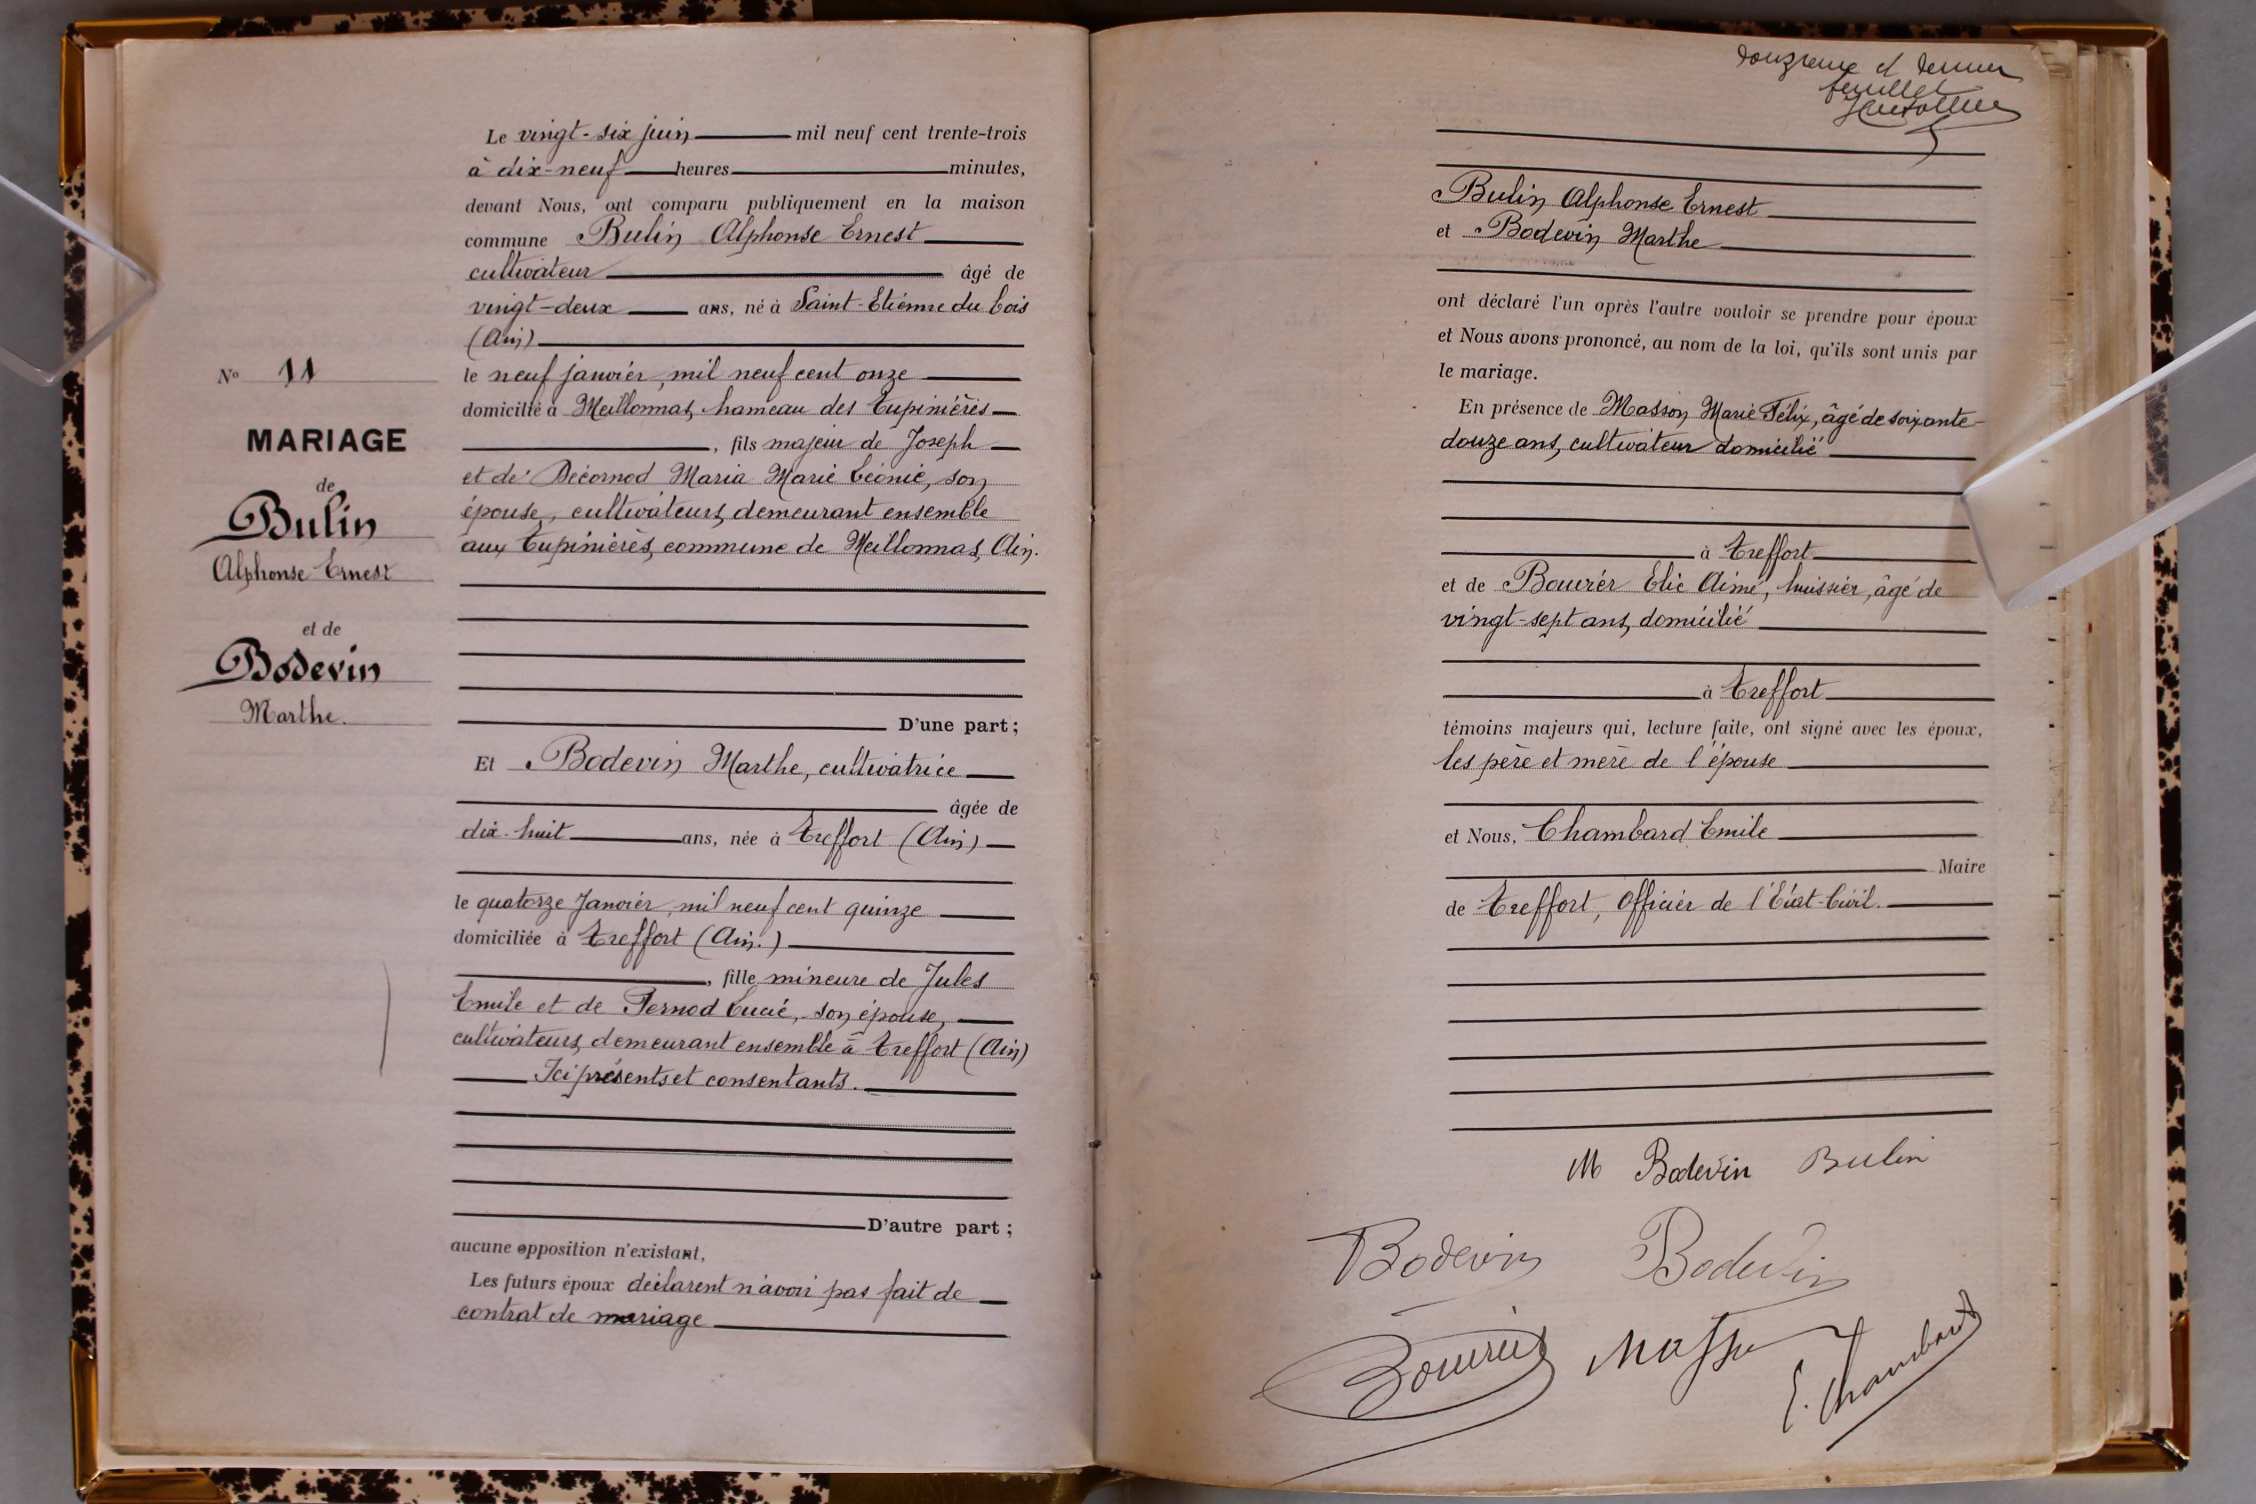 Le vingt-six juin mil neuf cent trente-trois
à dix-neuf heures minutes,
devant Nous, ont comparu publiquement en la maison
commune Bulin Alphonse Ernest
cultivateur âgé de
vingt-deux ans, né à Saint-Etienne du bois
(Ain)
le neuf janvier, mil neuf cent onze
domicilié à Meillonnas, hameau des Tupinières
, fils majeur de Joseph
et de Décornod Maria Marie Léonie, son
épouse, cultivateurs, demeurant ensemble
aux Tupinières, commune de Meillonnas, Ain.
D'une part ;
Et Bodevin Marthe, cultivatrice
âgée de
dix-huit ans, née à Treffort (Ain)
le quatorze Janvier, mil neuf cent quinze
domiciliée à Treffort (Ain.)
, fille mineure de Jules
Emile et de Pernod Lucie, son épouse,
cultivateurs, demeurant ensemble à Treffort (Ain)
Ici présents et consentants.
D'autre part ;
aucune opposition n'existant,
Les futurs époux déclarent n'avoir pas fait de
contrat de mariage
No 11
MARIAGE
de
Bulin
Alphonse Ernest
et de
Bodevin
Marthe.
douzième et dernier
feuillet
Bulin Alphonse Ernest
et Bodevin Marthe
ont déclaré l'un après l'autre vouloir se prendre pour époux
et Nous avons prononcé, au nom de la loi, qu'ils sont unis par
le mariage.
En présence de Masson Marie Félix, âgé de soixante-
douze ans, cultivateur domicilié
à Treffort
et de Bouvier Elie Aimé, huissier, âgé de
vingt-sept ans, domicilié
à Treffort
témoins majeurs qui, lecture faite, ont signé avec les époux,
les père et mère de l'épouse
et Nous, Chambard Emile
Maire
de Treffort, Officier de l'Etat-Civil.
M Bodevin Bulin
Bodevin Bodevin
Bouvier Masson
E. Chambard